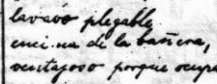 lavavo plegable
encima de la bañera,
ventajoso porque ocupa